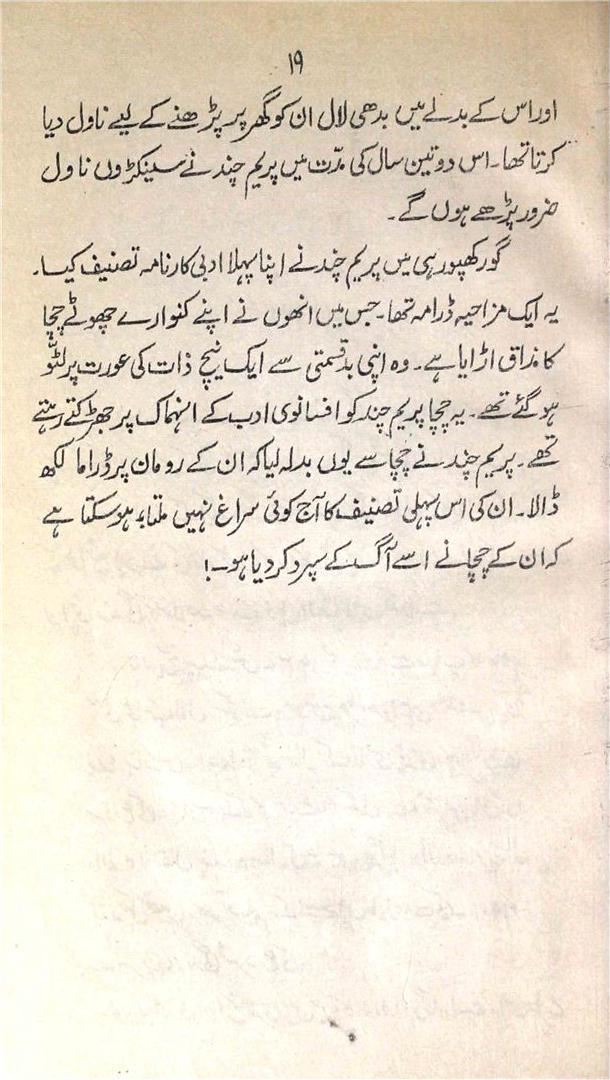 ۱۹
اور اس کے بدلے میں بدھی لال ان کو گھر پر پڑھنے کے لیے ناول دیا
کرتا تھا۔ اس دو تین سال کی مدّت میں پریم چند نے سینکڑوں ناول
ضرور پڑھے ہوں گے۔
گورکھپور ہی میں پریم چند نے اپنا پہلا ادبی کارنامہ تصنیف کیا۔
یہ ایک مزاحیہ ڈرامہ تھا۔ جس میں انھوں نے اپنے کنوارے چھوٹے چچا
کا مذاق اڑایا ہے۔ وہ اپنی بدقسمتی سے ایک نیچ ذات کی عورت پر لٹّو
ہو گئے تھے۔ یہ چچا پریم چند کو افسانوی ادب کے انہماک پر جھڑکتے رہتے
تھے۔ پریم چند نے چچا سے یوں بدلہ لیا کہ ان کے رومان پر ڈراما لکھ
ڈالا۔ ان کی اس پہلی تصنیف کا آج کوئی سراغ نہیں ملتا، ہو سکتا ہے
کہ ان کے چچا نے اسے آگ کے سپرد کر دیا ہو۔!